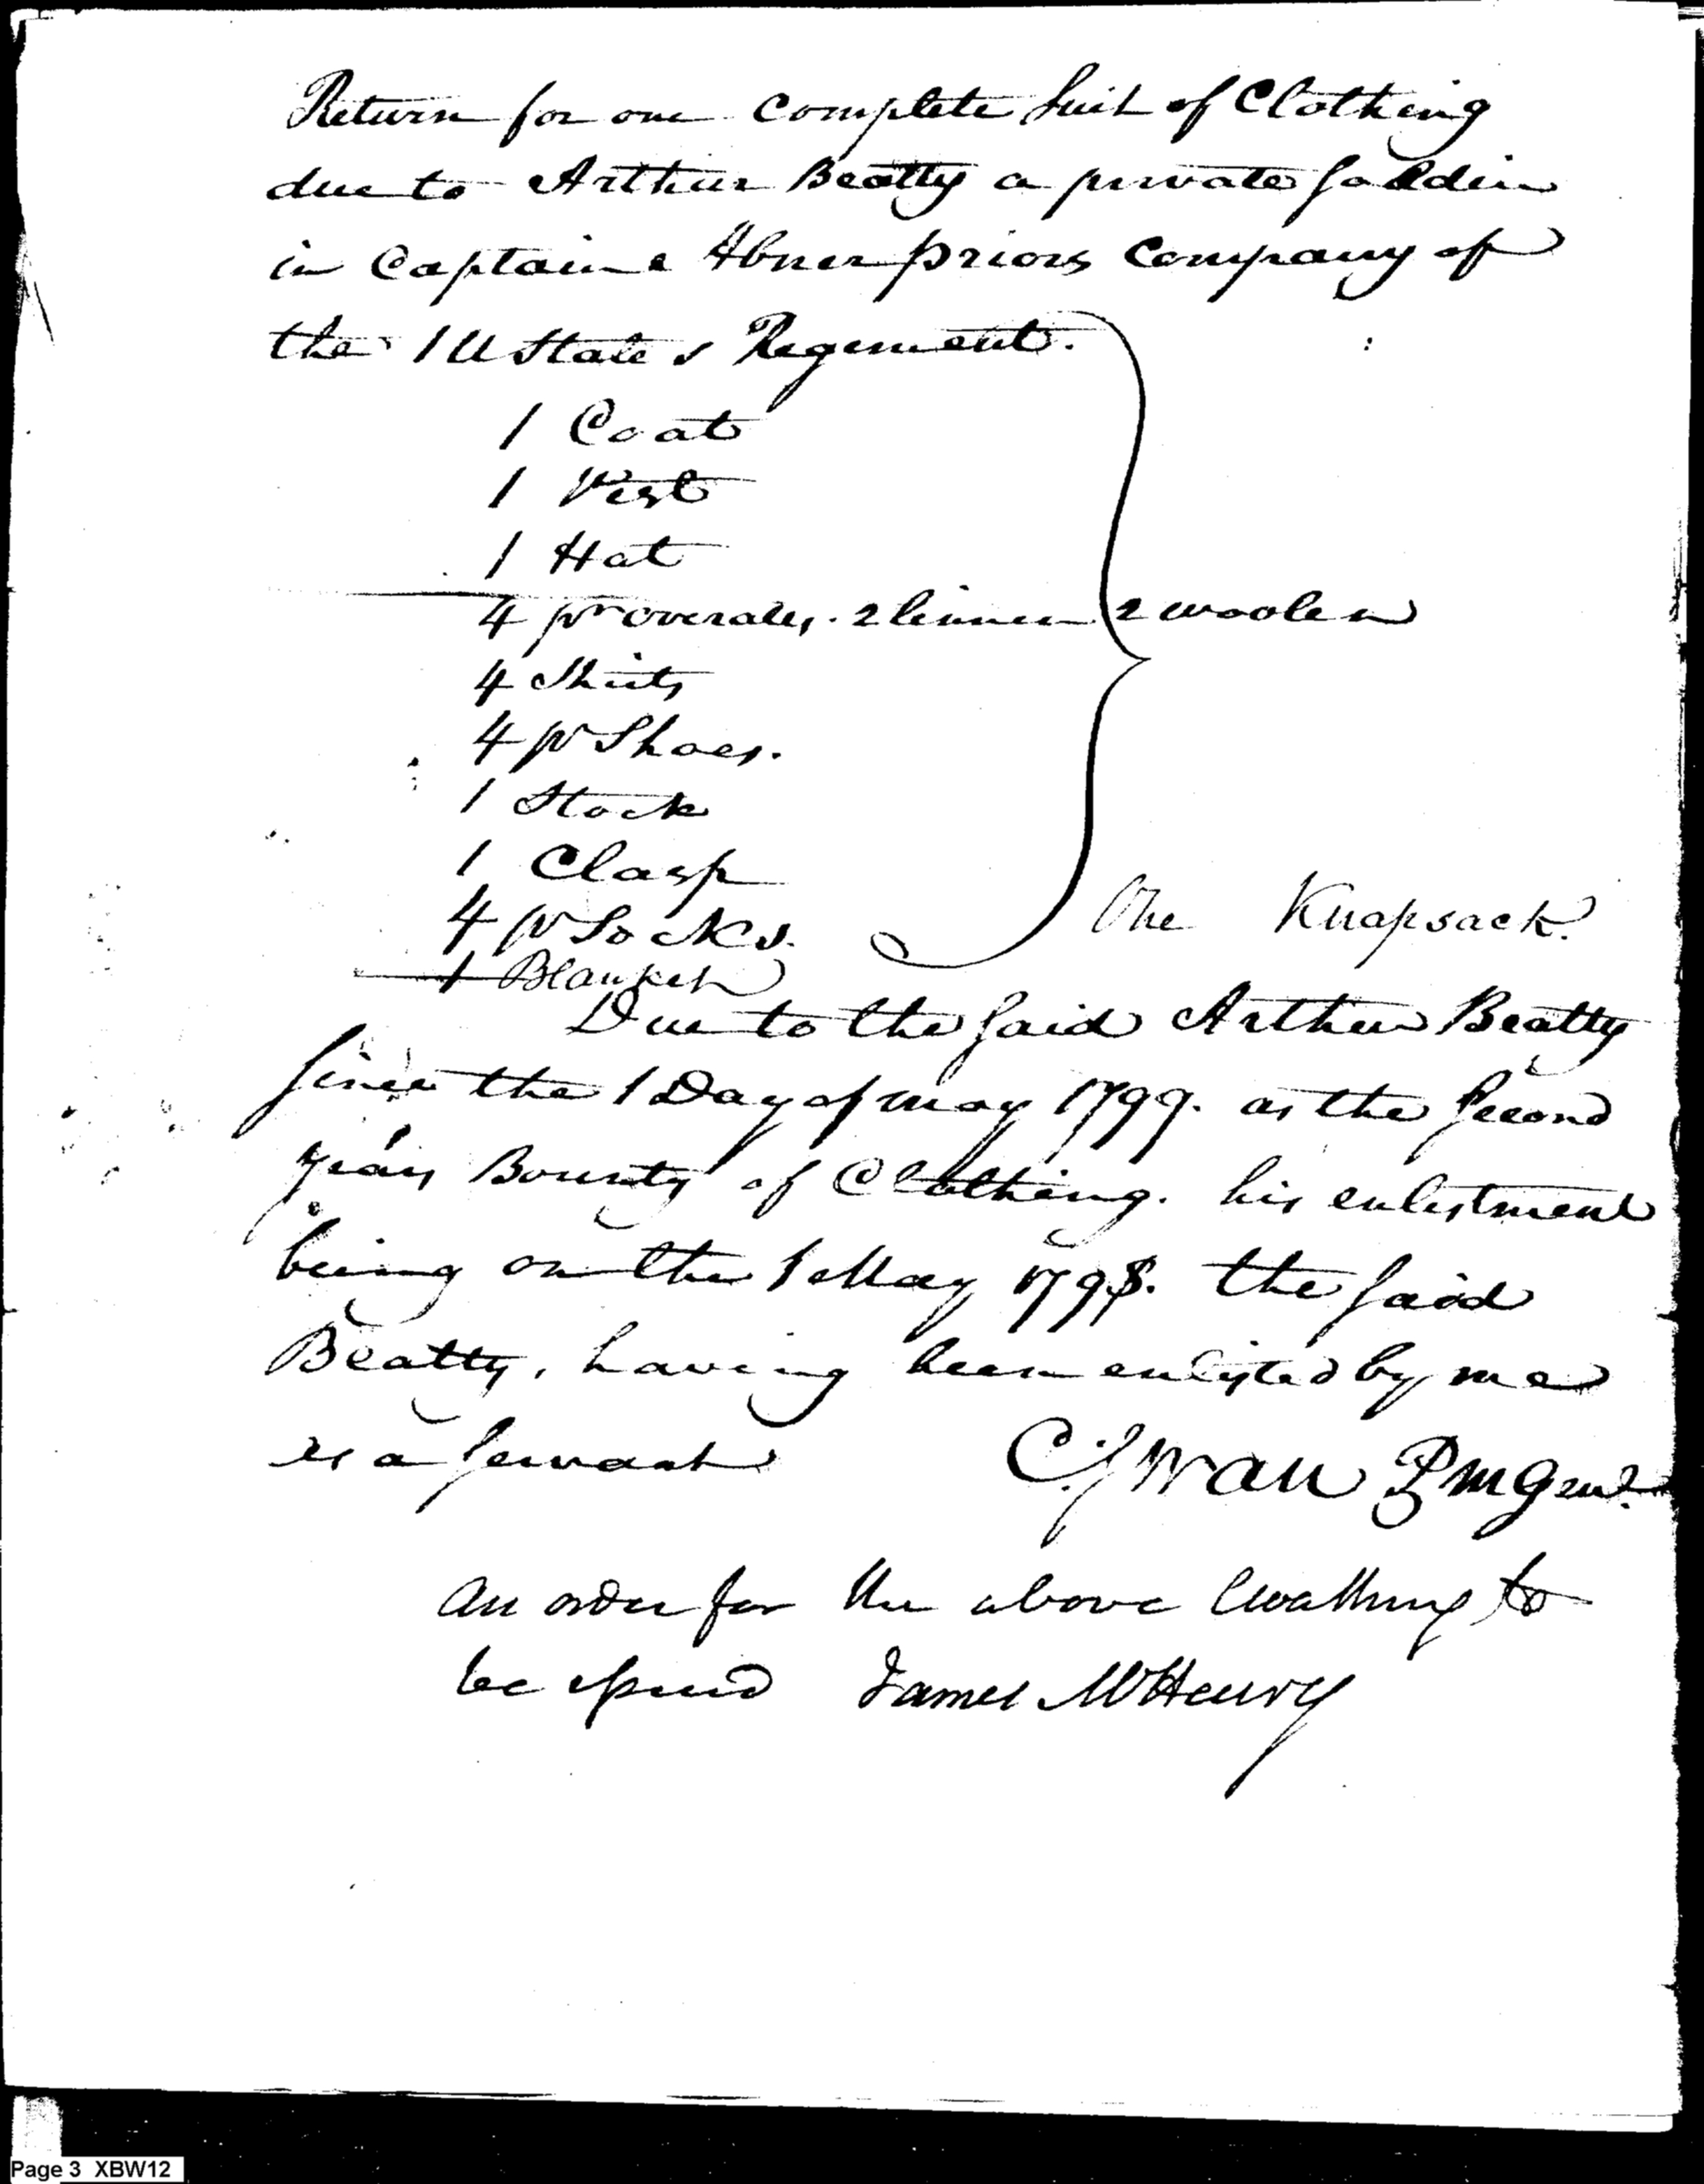 Return for one complete Suit of Clothing
due to Arthur Beatty a private Soldier
in Captain Abner priors Company of
the 1 U States Regement.
1 Coat
1 Vest
1 Hat
4 pr overalls. 2 linnen 2 woolen
4 Shirts
4 pr Shoes.
1 Stock
1 Clasp
4 pr Socks.
One Knapsack.
1 Blanket
Due to the said Arthur Beatty
Since the 1 Day of may 1799. as the Second
years Bounty of Clothing. his enlistment
being on the 1 May 1798. the said
Beatty, having been enlisted by me
as a servant
C. Swan P M Genl.
an order for the above cloathing to
be issued James McHenry
Page 3 XBW12